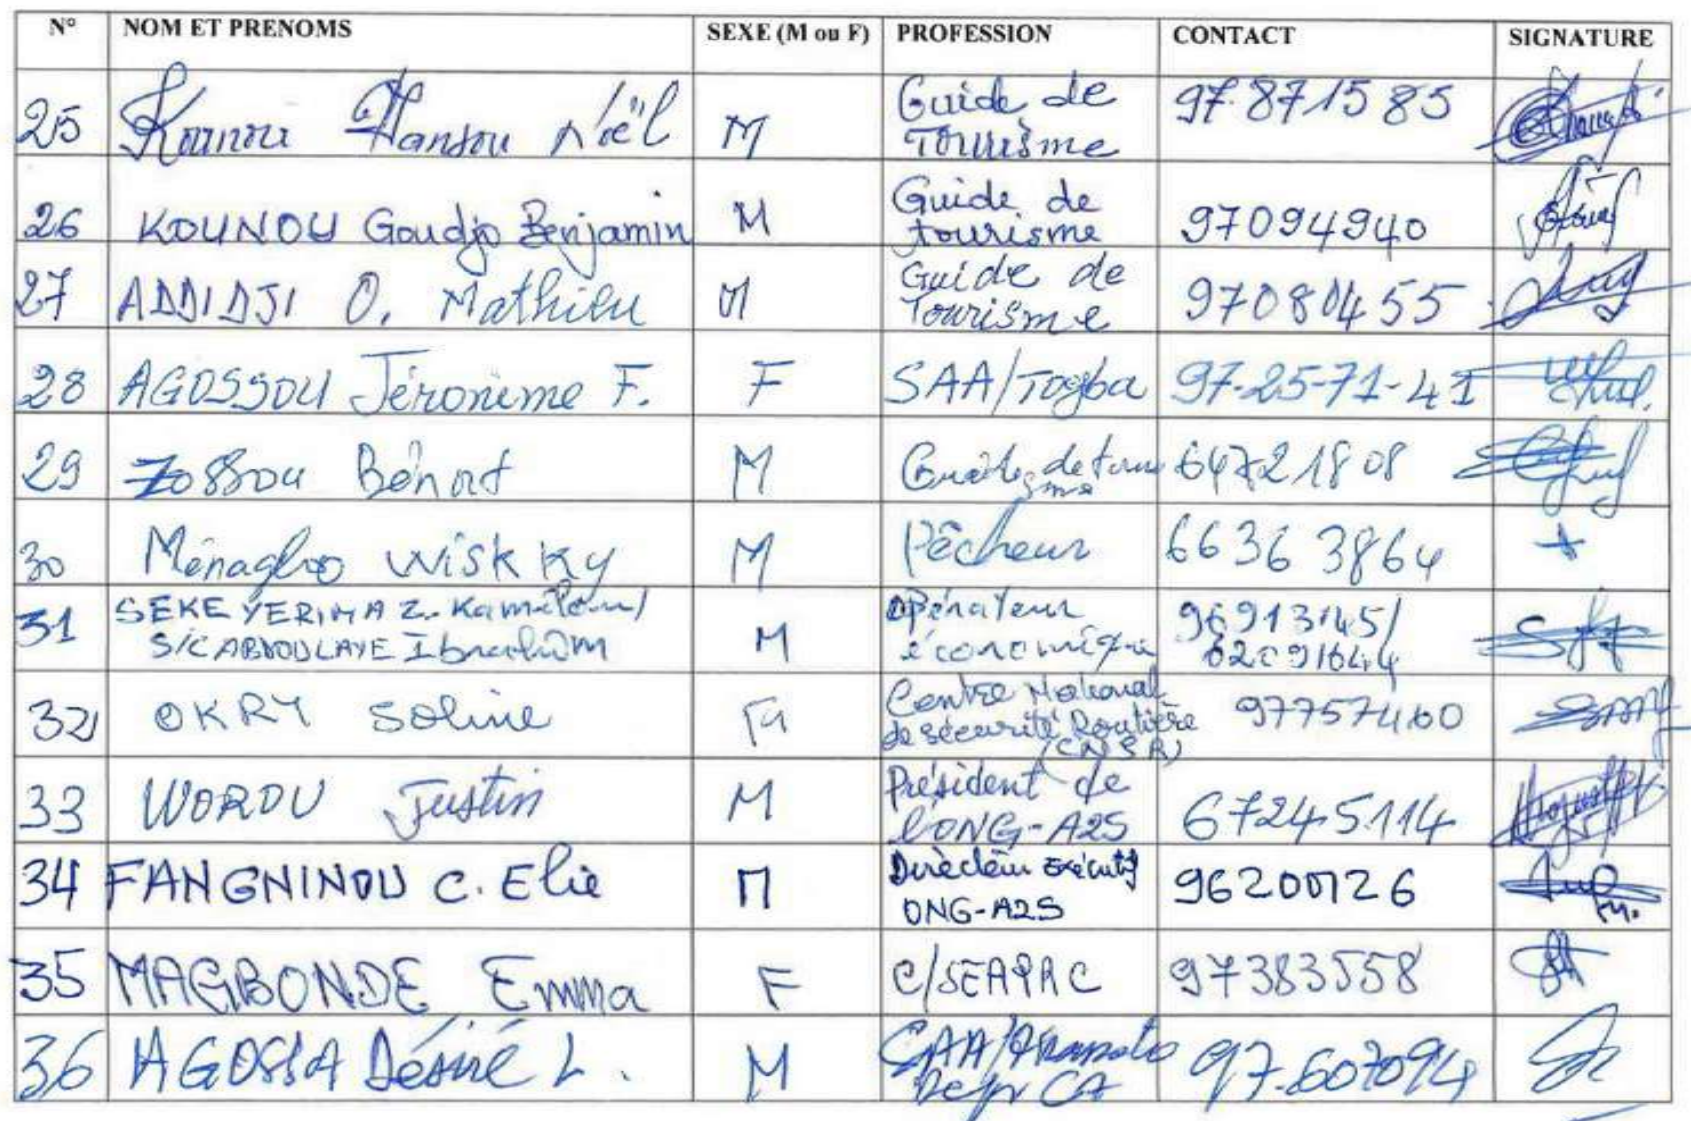 N° NOM ET PRENOMS SEXE (M ou F) PROFESSION CONTACT SIGNATURE
25 Kounou Hansou Noël M Guide de Tourisme 97.871585
26 KOUNOU Goudjo Benjamin M Guide de tourisme 97094940
27 ADDIDJI O. Mathieu M Guide de Tourisme 97080455
28 AGOSSOU Jéronime F. F SAA/Togba 97-25-71-41
29 Zossou Bénoit M 64721808
30 Ménagbo WISKKY M Pêcheur 66363864
31 SEKE YERIMA Z. /
S/C ABDOULAYE Ibrahim M Opérateur économique 96913145/
62091644
32 OKRY Soline F Centre National
de sécurité Routière
(CNSR) 97757460
33 WOROU Justin M Président de
l'ONG-A2S 67245114
34 FANGNINOU C. Elie M Directeur Exécutif
ONG-A2S 96200126
35 MAGBONDE Emma F C/SEAPAC 97383558
36 AGOSSA Désiré L. M 97.607094